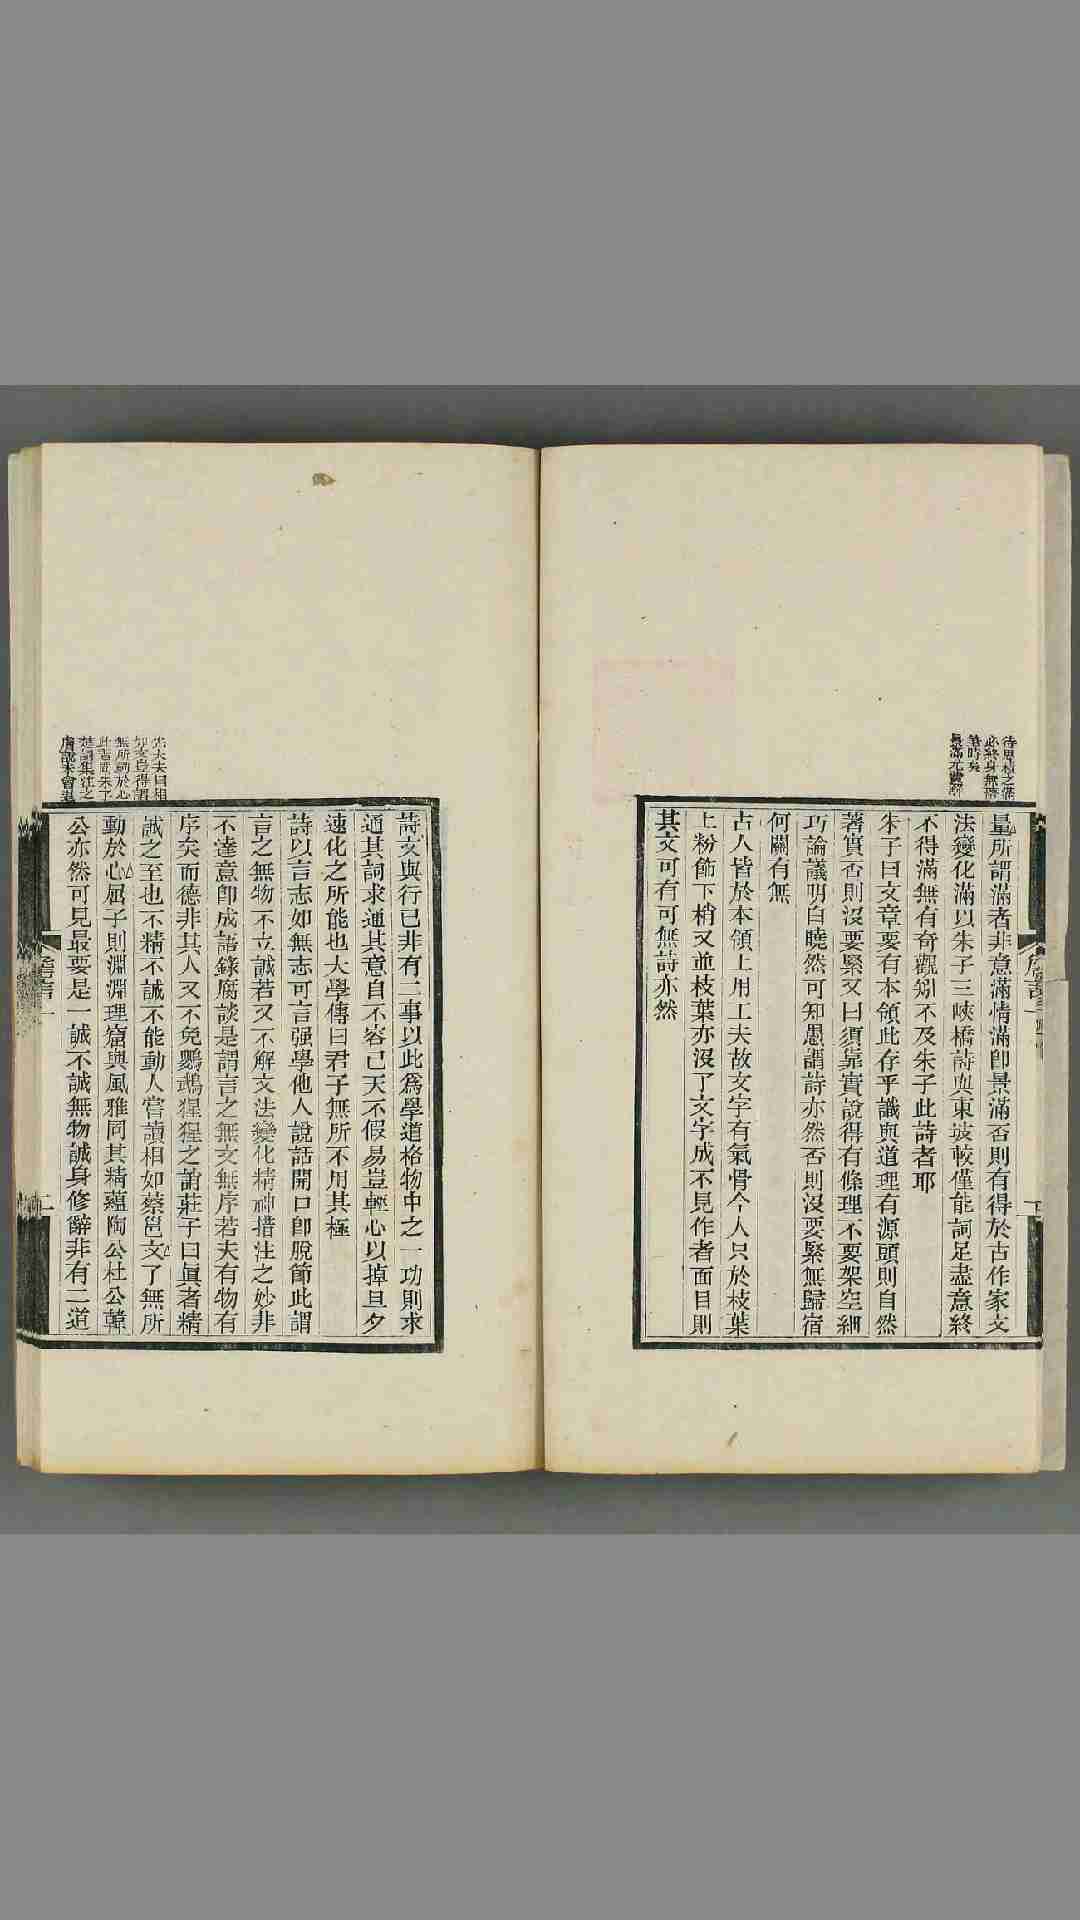 待思積之滿
必終身無滿
筆時矣
量所謂滿者非意滿情滿卽景滿否則有得於古作家文
法變化滿以朱子三峽橋詩與東坡較僅能詞足盡意終
不得滿無有奇觀矧不及朱子此詩者耶
朱子曰文章要有本領此存乎識與道理有源頭則自然
著實否則沒要緊又曰須靠實說得有條理不要架空細
巧論議明白曉然可知愚謂詩亦然否則沒要緊無歸宿
何關有無
古人皆於本領上用工夫故文字有氣骨今人只於枝葉
上粉節下梢又並枝葉亦沒了文字成不見作者面目則
其文可有可無詩亦然
先大夫曰相
如文豈得謂
無所動於心
此習聞朱子
楚詞集注之
膚說未會甚
詩文與行已非有二事以此爲學道格物中之一功則求
通其詞求通其意自不容已天不假易豈輕心以掉旦夕
速化之所能也大學傳曰君子無所不用其極
詩以言志如無志可言强學他人說話開口卽脫節此謂
言之無物不立誠若又不解文法變化精神措注之妙非
不達意卽成語錄腐談是謂言之無文無序若夫有物有
序矣而德非其人又不免鸚鵡猩猩之誚莊子曰眞者精
誠之至也不精不誠不能動人嘗讀相如蔡邕文了無所
動於心屈子則淵淵理窟與風雅同其精蘊陶公杜公韓
公亦然可見最要是一誠不誠無物誠身修辭非有二道